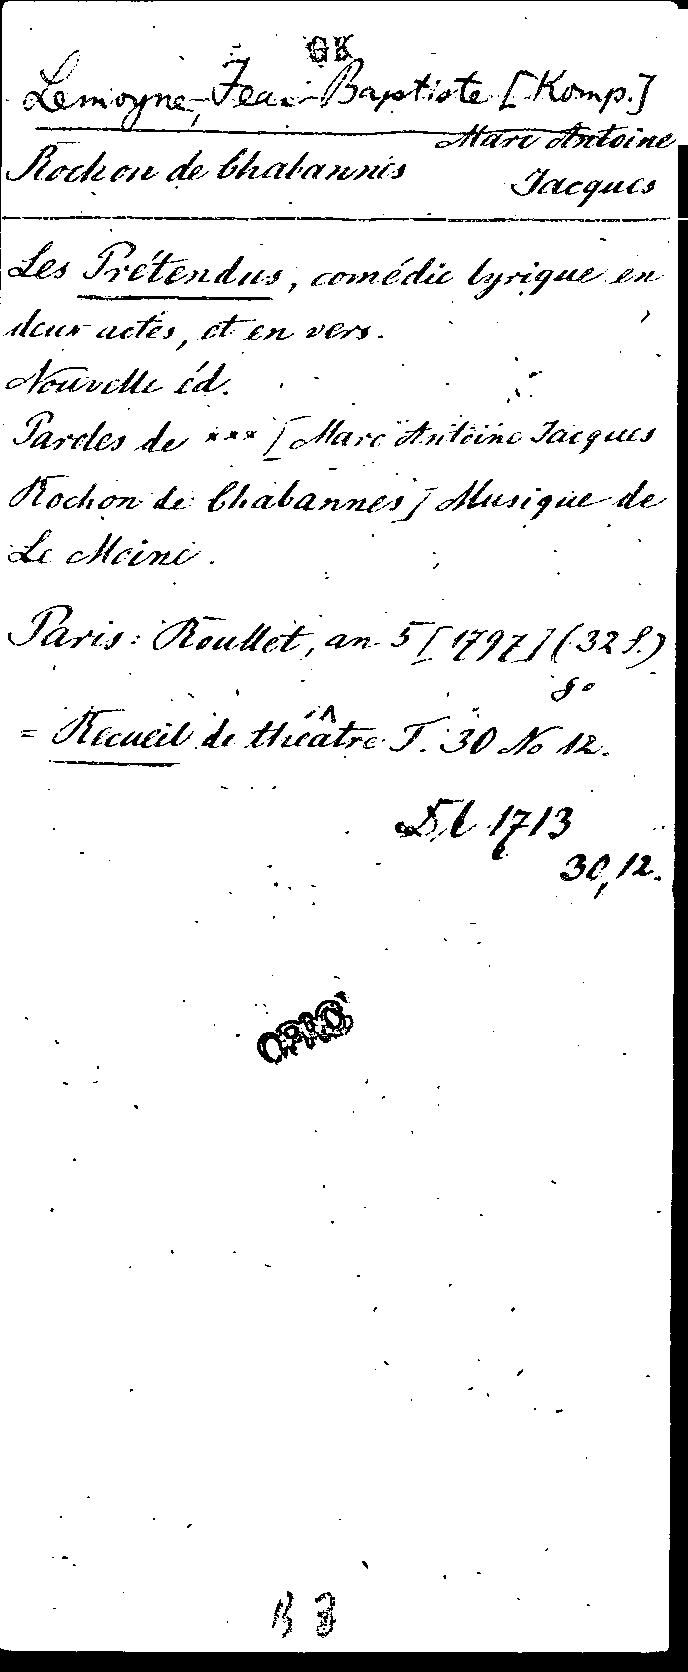 GK
Lemoyne, Jean-Baptiste [Komp.]
Marc Antoine
Rochon de Chabannes Jacques
Les Prétendus, comédie lyrique en
deux actes, et en vers.
Nouvelle éd.
Paroles de *** [Marc Antoine Jacques
Rochon de Chabannes] Musique de
Le Moine.
Paris: Roullet, an 5 [1797] (32 S.)
8°
= Recueil de théâtre T. 30 No 12.
1713
30,12.